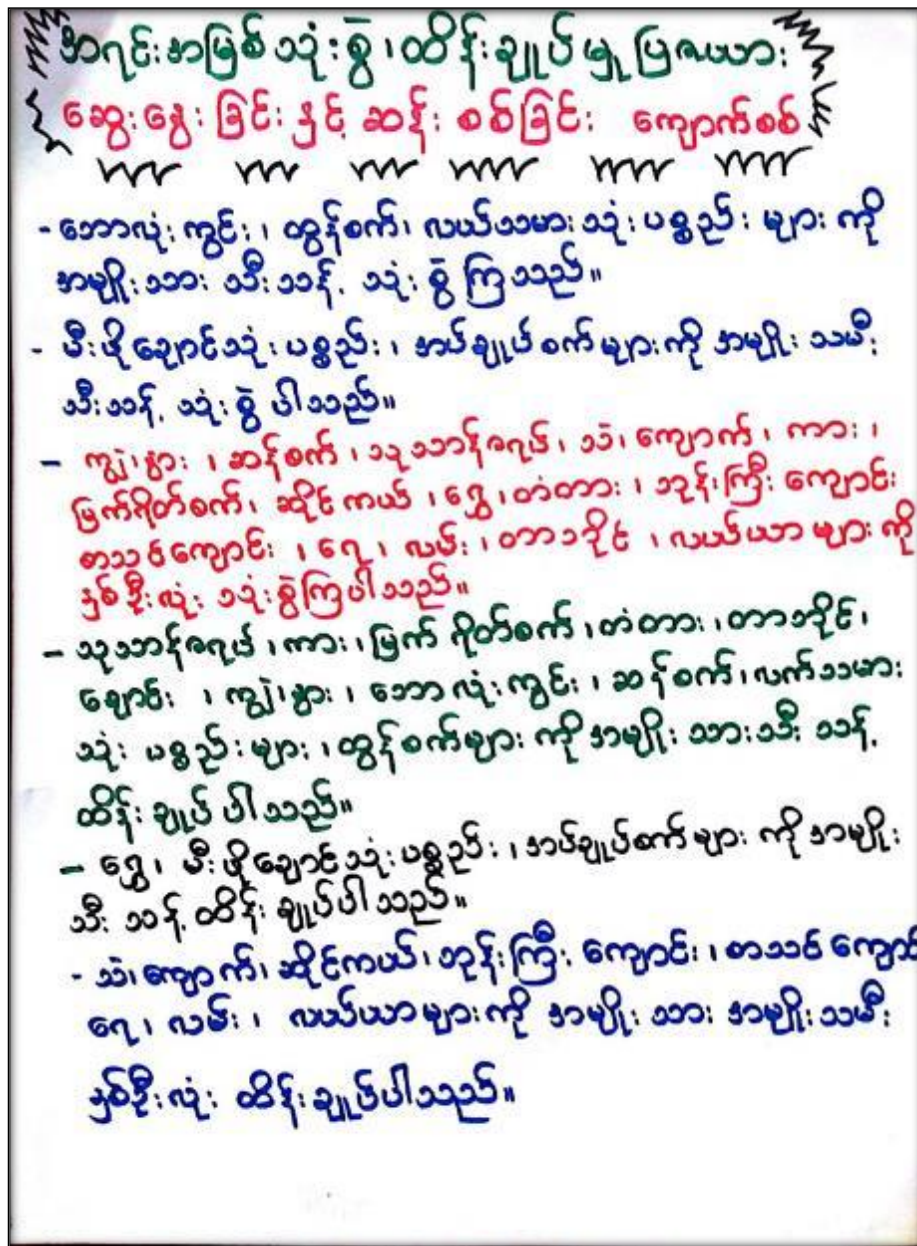 အရင်းအမြစ်သုံးစွဲ၊ထိန်းချုပ်မှုပြဇယား
ဆွေးနွေးခြင်းနှင့်ဆန်းစစ်ခြင်း ကျောက်စစ်
- ဘောလုံးကွင်း၊ ထွန်စက်၊ လယ်သမားသုံးပစ္စည်းများကို
အမျိုးသား သီးသန့် သုံးစွဲကြသည်။
- မီးဖိုချောင်သုံးပစ္စည်း၊ အပ်ချုပ်စက်များကို အမျိုးသမီး
သီးသန့် သုံးစွဲပါသည်။
- ကျွဲ၊နွား၊ ဆန်စက်၊ သုသာန်ဇရပ်၊ သဲ၊ကျောက်၊ ကား၊
မြက်ရိတ်စက်၊ ဆိုင်ကယ်၊ ရွှေ၊ တံတား၊ ဘုန်းကြီးကျောင်း
စာသင်ကျောင်း၊ ရေ၊ လမ်း၊ တာဘိုင်၊ လယ်ယာများကို
နှစ်ဦးလုံး သုံးစွဲကြပါသည်။
- သုသာန်ဇရပ်၊ ကား၊ မြက်ရိတ်စက်၊ တံတား၊ တာဘိုင်၊
ချောင်း၊ ကျွဲ၊နွား၊ ဘောလုံးကွင်း၊ ဆန်စက်၊ လက်သမား
သုံးပစ္စည်းများ၊ ထွန်စက်များကို အမျိုးသားသီးသန့်
ထိန်းချုပ်ပါသည်။
- ရွှေ၊ မီးဖိုချောင်သုံးပစ္စည်း၊ အပ်ချုပ်စက်များကို အမျိုး
သီးသန့် ထိန်းချုပ်ပါသည်။
- သဲ၊ကျောက်၊ ဆိုင်ကယ်၊ ဘုန်းကြီးကျောင်း၊ စာသင်ကျောင်
ရေ၊ လမ်း၊ လယ်ယာများကို အမျိုးသား အမျိုးသမီး
နှစ်ဦးလုံး ထိန်းချုပ်ပါသည်။